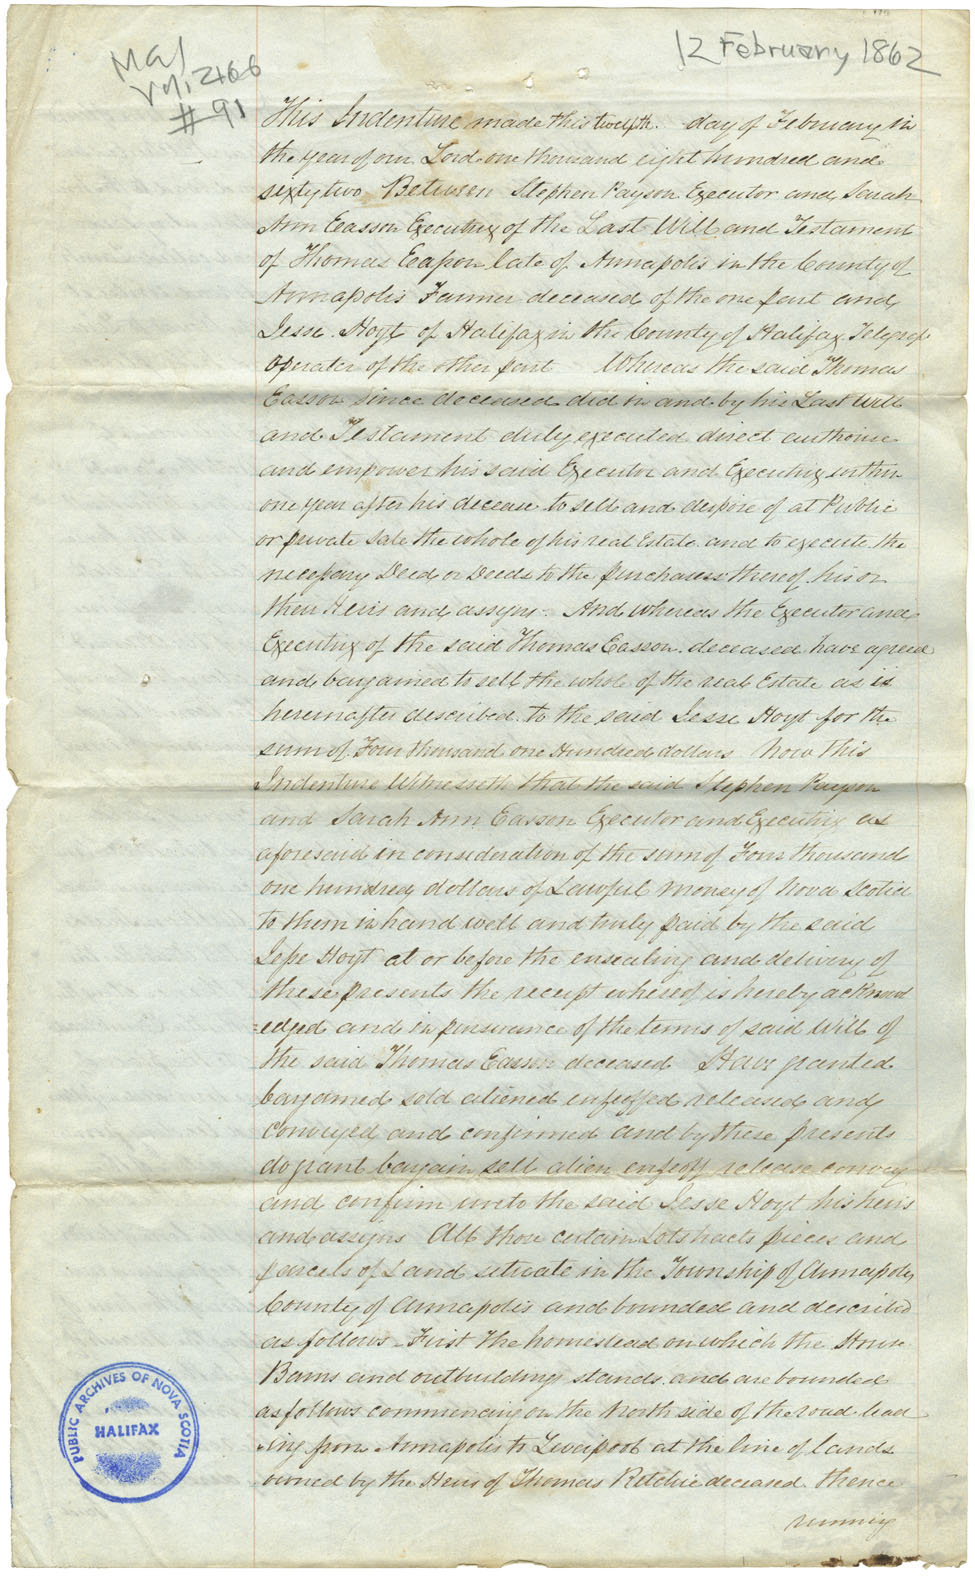 MG1
Vol. 2466
#91
12 February 1862
This Indenture made this twelfth. day of February in
the year of our Lord one thousand eight hundred and
sixty two Between Stephen Payson Executor and Sarah
Ann Easson Executrix of the Last Will and Testament
of Thomas Eason late of Annapolis in the County of
Annapolis Farmer deceased of the one part and
Jesse Hoyt of Halifax in the County of Halifax Telegraph
operater of the other part Whereas the said Thomas
Easson since deceased did in and by his Last Will
and Testament duly executed direct authorise
and empower his said Executor and Executrix within
one year after his decease to sell and dispose of at Public
or private Sale the whole of his real Estate and to execute the
necessary Deed or Deeds to the purchasers thereof his or
their Heirs and assigns. And whereas the Executor and
Executrix of the said Thomas Easson deceased have agreed
and bargained to sell the whole of the real Estate as is
hereinafter described to the said Jesse Hoyt for the
sum of Four thousand one Hundred dollars Now This
Indenture Witnesseth that the said Stephen Payson
and Sarah Ann Easson Executor and Executrix as
aforesaid in consideration of the sum of Four thousand
one hundred dollars of Lawful money of Nova Scotia
to them in hand well and truly paid by the said
Jesse Hoyt at or before the ensealing and delivery of
these presents the receipt whereof is hereby acknowl
=edged and in pursurance of the terms of said Will of
the said Thomas Easson deceased Have granted
bargained sold aliened enfeoffed released and
conveyed and confirmed and by these presents
do grant bargain sell alien enfeoff release convey
and confirm unto the said Jesse Hoyt his heirs
and assigns All those certain Lots tracts pieces and
parcels of Land situate in the Township of Annapolis
County of Annapolis and bounded and described
as follows. First The homestead on which the House
Barns and outbuildings stands. and are bounded
as follows commencing on the North side of the road lead
=ing from Annapolis to Liverpool at the line of lands
owned by the Heirs of Thomas Ritchie deceased. thence
running
PUBLIC ARCHIVES OF NOVA SCOTIA
HALIFAX